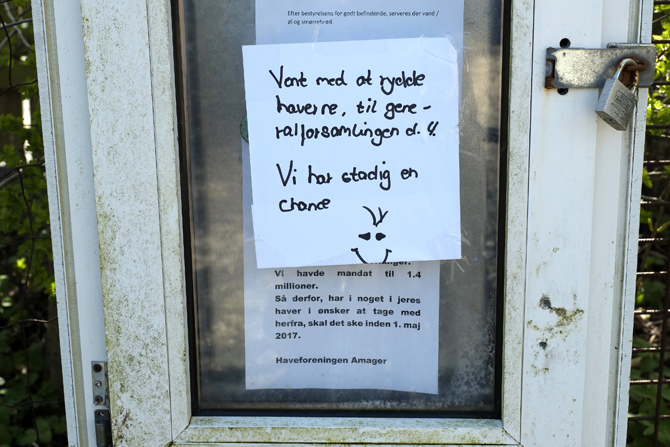 Efter bestyrelsens for godt befindende, serveres der vand /
øl og smørrebrød.
Vent med at rydde
haverne, til gene-
ralforsamlingen d. 4.
Vi har stadig en
chance
Vi havde mandat til 1.4
millioner.
Så derfor, har i noget i jeres
haver i ønsker at tage med
herfra, skal det ske inden 1. maj
2017.
Haveforeningen Amager